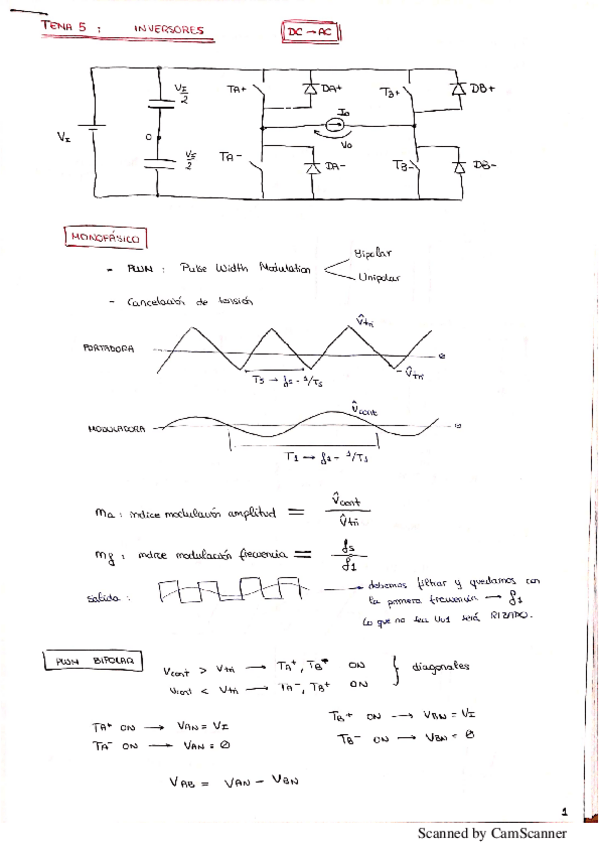 TEMA 5 : INVERSORES
DC → AC
VI/2
TA+
DA+
TB+
DB+
Io
VI
O
Vo
TA-
DA-
TB-
DB-
MONOFÁSICO
- PWM : Pulse Width Modulation
Bipolar
Unipolar
- Cancelación de tensión
V̂tri
PORTADORA
- V̂tri
Ts → fs = 1/Ts
V̂cont
MODULADORA
T1 → f1 =
ma : índice modulación amplitud = V̂cont / V̂tri
mf : índice modulación frecuencia = fs / f1
salida :
→ debemos filtrar y quedarnos con
la primera frecuencia → f1
Lo que no sea será RIZADO.
PWM BIPOLAR
Vcont > Vtri → TA+, ON
Vcont < Vtri → TA-, TB+ ON
} diagonales
TA+ ON → VAN = VI
TB+ ON → VBN = VI
TA- ON → VAN = 0
TB- ON → VBN = 0
VAB = VAN - VBN
1
Scanned by CamScanner